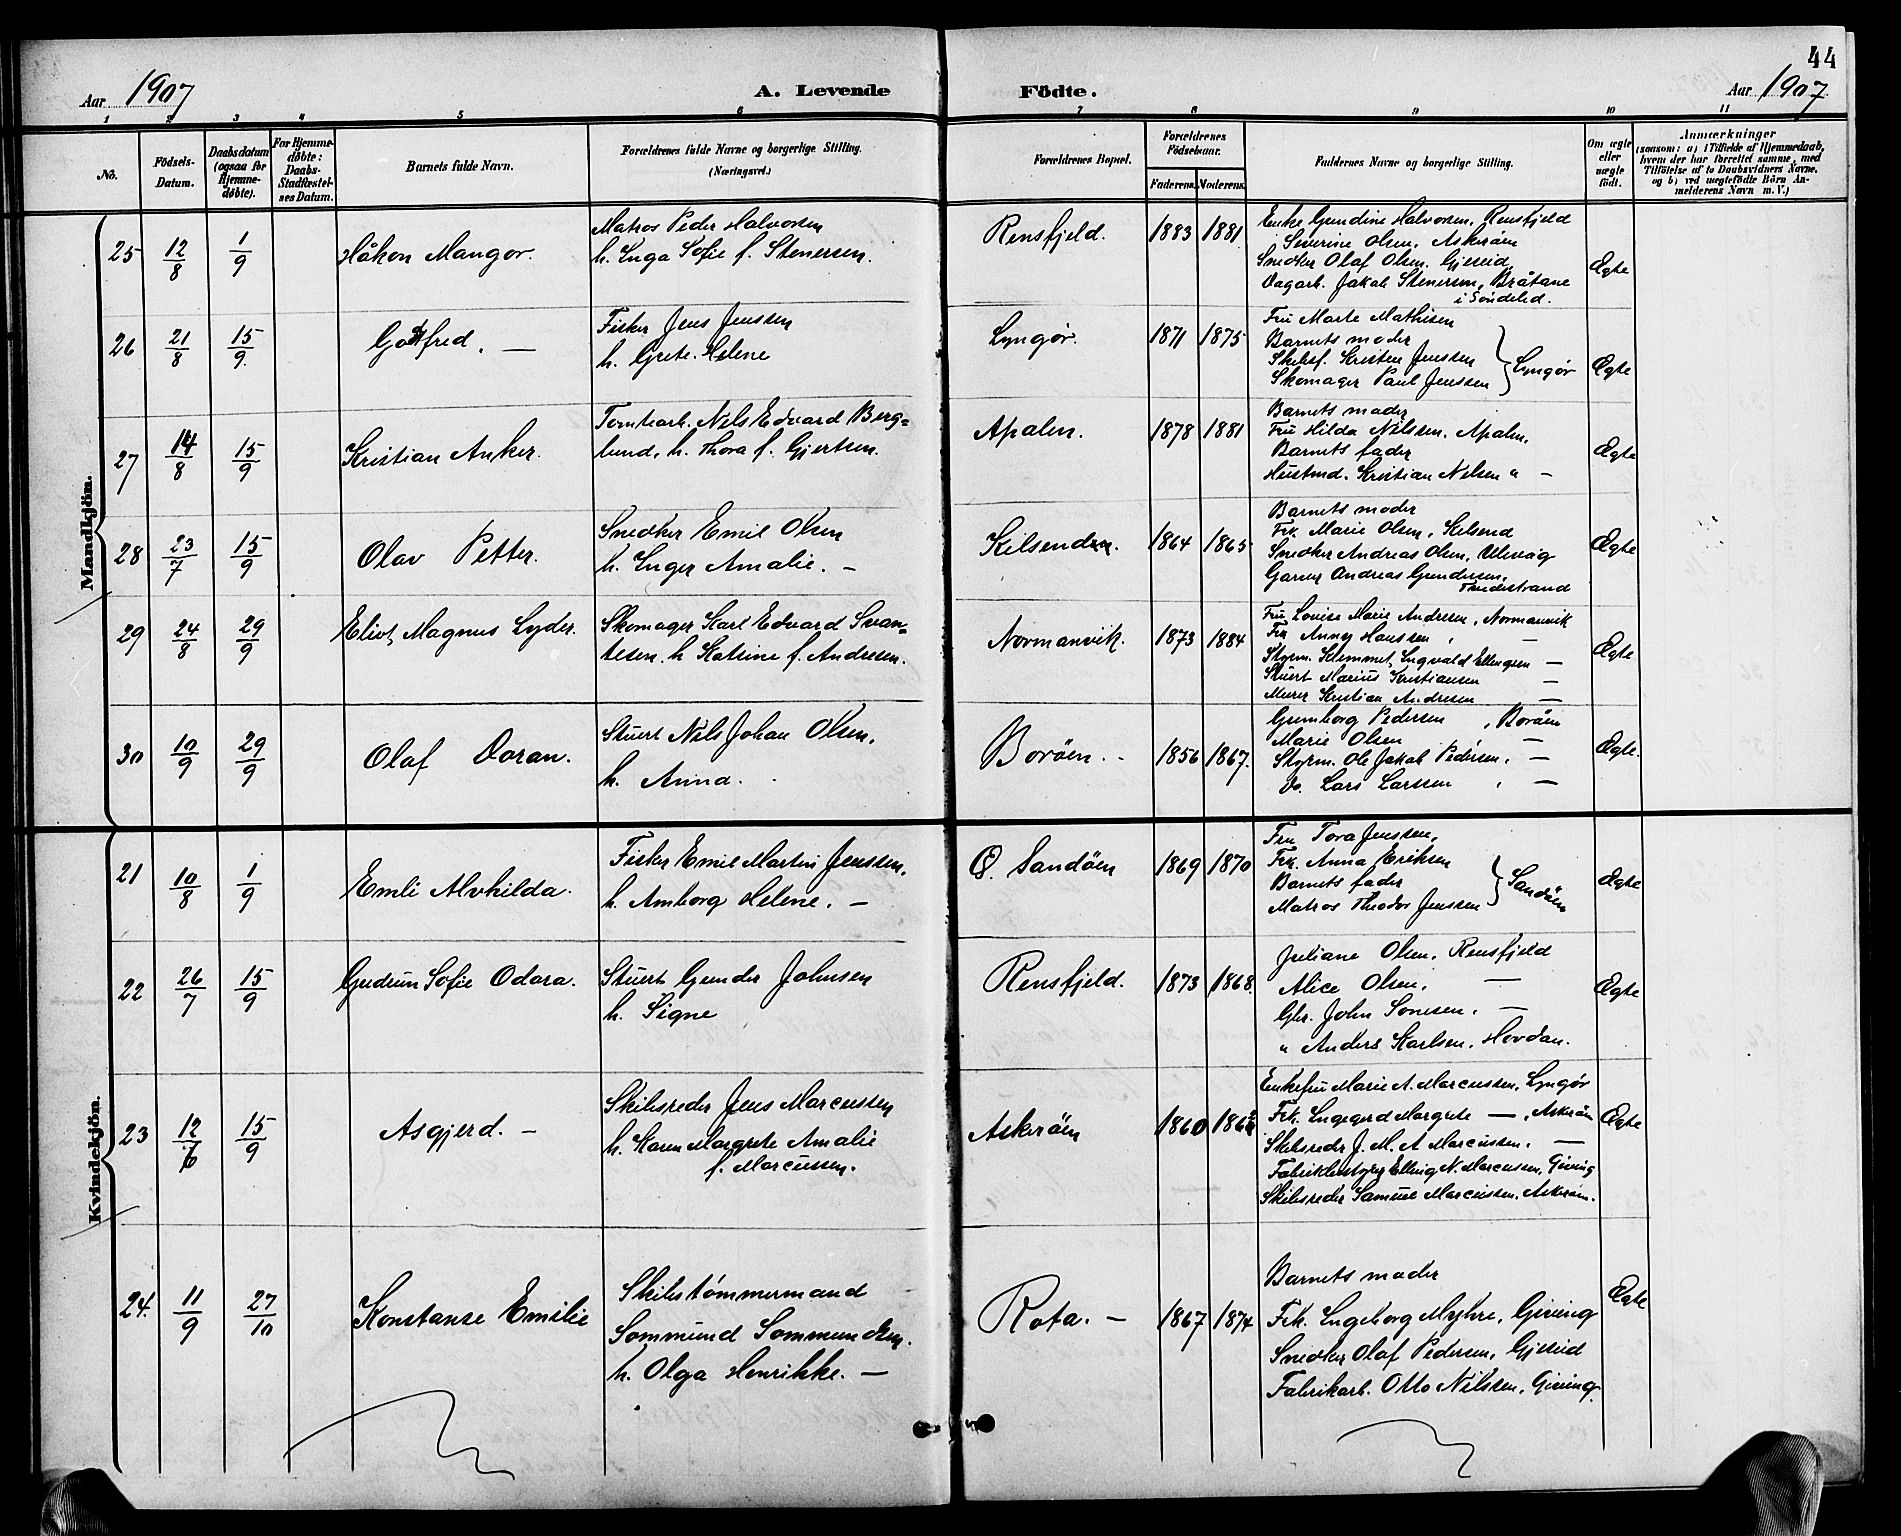 44
Aar 1907
A. Levende
Födte.
Aar 1907.
1 2 3 4 5 6 7 8 9 10 11
No.
Födsels-
Datum.
Daabsdatum
(ogsaa for
Hjemme-
døbte).
For Hjemme-
døbte:
Daabs-
Stadfæstel-
ses Datum.
Barnets fulde Navn.
Forældrenes fulde Navne og borgerlige Stilling.
(Næringsvei.)
Forældrenes Bopæl.
Forældrenes
Födselsaar.
Faderens. Moderens.
Faddernes Navne og borgerlige Stilling.
Om ægte
eller
uægte
født.
Anmærkninger
(saasom: a) i Tilfælde af Hjemmedaab,
hvem der har forrettet samme, med
Tilføielse af to Daabsvidners Navne.
og b) ved uægtefödte Börn An-
melderens Navn m. V.)
Mandkjön.
25 12/8 1/9 Håkon Mangor.
Matros Peder Halvorsen
h. Inga Sofie f. Stenersen.
Rensfjeld. 1883 1881
Enke Gundine Halvorsen, Rensfjeld
Severine Olsen, Askerøen
Snedker Olaf Olsen, Gjeseid
Dagarb. Jakob Stenersen, Bråtane
i Søndeled.
Ægte
26 21/8 15/9 Gotfred. —
Fisker Jens Jenssen
h. Grete Helene
Lyngør. 1871 1875
Fru Marte Mathisen
Barnets moder
Skibsf. Kristen Jenssen
Skomager Paul Jenssen } Lyngør
Ægte
27 14/8 15/9 Kristian Anker.
Tomtearb. Nels Edvard Berg=
lund, h. Thora f. Gjertsen.
Apalen. 1878 1881
Barnets moder
Fru Hilda Nilssen, Apalen.
Barnets fader
Husmd. Kristian Nelsen " —
Ægte
28 23/7 15/9 Olav Petter.
Snedker Emil Olsen
h. Inger Amalie. —
Kilsend. 1864 1865
Barnets moder
Frk. Marie Olsen, Kilsend
Snedker Andreas Olsen, Ulevåg
Garver Andreas Gundersen,
Tvedestrand
Ægte
29 24/8 29/9 Eliot Magnus Lyder.
Skomager Karl Edvard Svan=
tesen. h Katrine f. Andresen.
Normanvik. 1873 1884
Fru Lovise Marie Andresen, Normanvik
Fru Anny Hanssen, —
Styrm. Klemmet Ingvald Ellingsen —
Stuert Marius Kristiansen —
Murer Kristian Andresen —
Ægte
30 10/9 29/9 Olaf Doran.
Stuert Nils Johan Olsen,
h. Anna.
Borøen. 1856 1867.
Gunborg Pedersen, Borøen
Marie Olsen —
Styrm. Ole Jakob Pedersen, —
Do. Lars Larssen, —
Ægte.
Kvindekjön.
21 10/8 1/9 Emli Alvhilda.
Fisker Emil Martin Jenssen,
h. Amborg Helene. —
Ø. Sandøen 1869 1870
Fru Tora Jenssen,
Frk. Anna Eriksen
Barnets fader
Matros Theodor Jenssen } Sandøen
Ægte
22 26/7 15/9 Gudrun Sofie Odora.
Stuert Gunder Johnsen
h. Signe
Rensfjeld. 1873 1868.
Juliane Olsen, Rensfjeld
Alice Olsen, —
Gbr. John Sonesen, —
" Anders Karlsen, Hovdan.
Ægte
23 12/6 15/9 Asgjerd. —
Skibsreder Jens Marcussen
h. Karen Margrete Amalie
f. Marcussen.
Askerøen 1860
Enkefru Marie A. Marcussen, Lyngør
Frk. Ingegerd Margrete —, Askerøen
Skibsreder J. M. A Marcussen, —
Fabrikbestyrer Elling N. Marcussen, Giving
Skibsreder Samuel Marcussen, Askerøen.
Ægte
24. 11/9 27/10 Konstanse Emilie
Skibstømmermand
Sommund Sommundsen.
h. Olga Henrikke. —
Rota. — 1867 1874
Barnets moder
Frk. Ingeborg Myhre, Giving
Snedker Olaf Pedersen, Gjeseid
Fabrikarb. Otto Nilssen, Giving.
Ægte